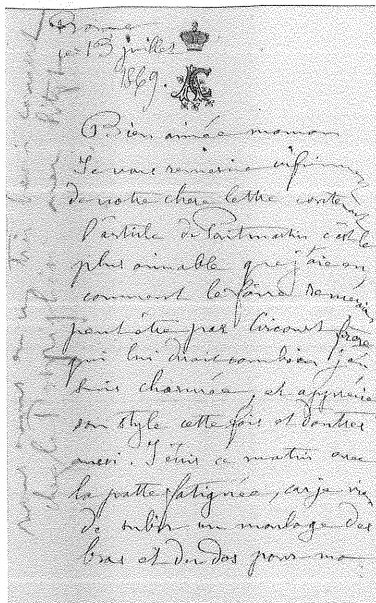 Rome
ce 13 juillet
1869.
Bien aimée maman
Je vous remercie infiniment
de votre chere lettre contenant
l'article de Pontmartin c'est le
plus aimable que j'aie eu
comment le faire remercier
peut être par Circourt frère
qui lui dirait combien j'en
suis charmée, et apprécie
son style cette fois et d'autres
aussi. J'écris ce matin avec
la patte fatiguée, car je viens
de subir un moulage des
bras et du dos pour ma
nous avons eu un très beau
chez le avec Liszt